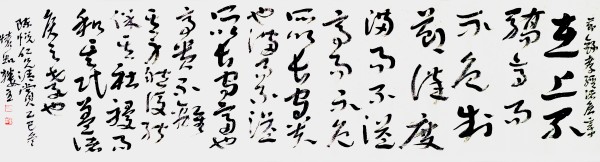 節錄孝經諸侯章
在上不
驕高而
不危制
節謹度
滿而不溢
高而不危
所以長守貴
也滿而不溢
所以長守富也
富貴不離
其身然後能
保其社稷而
和其民人蓋諸
侯之孝也
乙巳冬